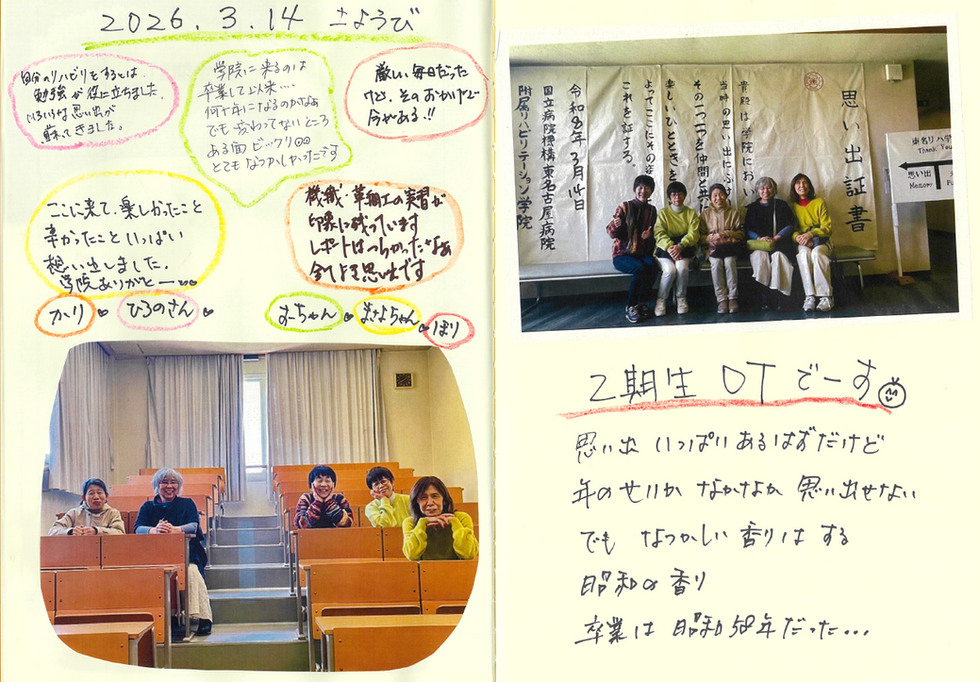 2026.3.14 土ようび
自分のリハビリをするとは
勉強が役に立ちました。
いろいろな思い出が
蘇ってきました。
学院に来るのは
卒業して以来…
何十年になるのかなぁ
でも変わってないところ
ある面ビックリ
とてもなつかしかったです
厳しい毎日だった
けど、そのおかげで
今がある!!
ここに来て、楽しかったこと
辛かったこといっぱい
想い出しました。
学院ありがとー
機織 革細工の実習が
印象に残っています
レポートはつらかったなぁ
全てよき思い出です
かり
ひろのさん
まーちゃん
まさよちゃん
ほり
思い出証書
貴殿は学院におい
当時の思い出にふけ
その一つ一つを仲間と共
楽しいひとときを
よってここにその姿
これを証する。
令和8年3月14日
国立病院機構東名古屋病院
附属リハビリテーション学院
東名リハ学
Thank You
思い出
Memory
2期生 OTでーす
思い出 いっぱいあるはずだけど
年のせいか なかなか 思い出せない
でも なつかしい 香りは する
昭和の香り
卒業は 昭和58年だった…